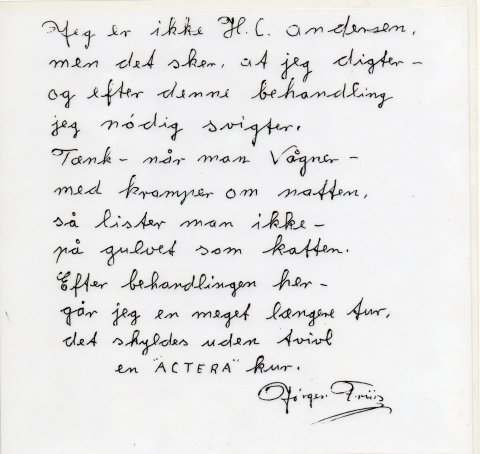 Jeg er ikke H.C. andersen,
men det sker, at jeg digter –
og efter denne behandling
jeg nødig svigter.
Tænk – når man Vågner –
med kramper om natten,
så lister man ikke –
på gulvet som katten.
Efter behandlingen her –
går jeg en meget længere tur,
det skyldes uden tvivl
en "ACTERA" kur.
Jørgen Friis